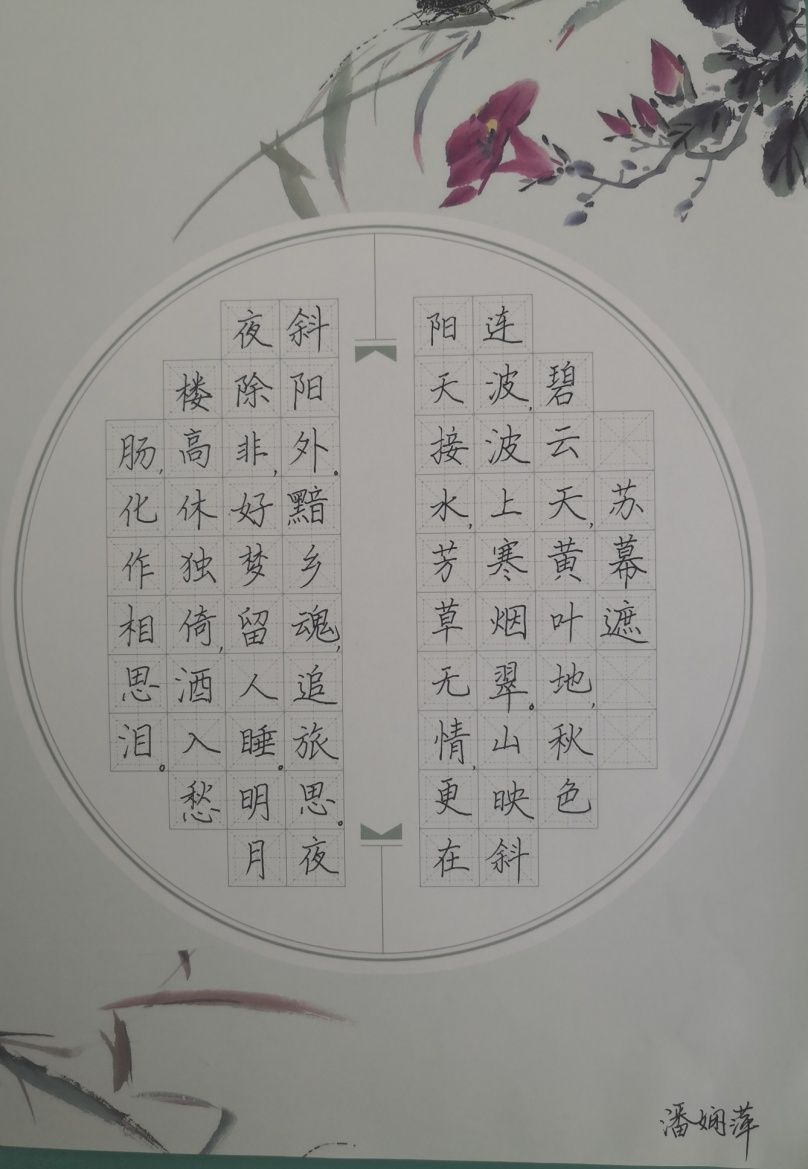 苏幕遮
碧云天,黄叶地,秋色
连波,波上寒烟翠。山映斜
阳天接水,芳草无情,更在
斜阳外。黯乡魂,追旅思。夜
夜除非,好梦留人睡。明月
楼高休独倚,酒入愁
肠,化作相思泪。
潘娴萍